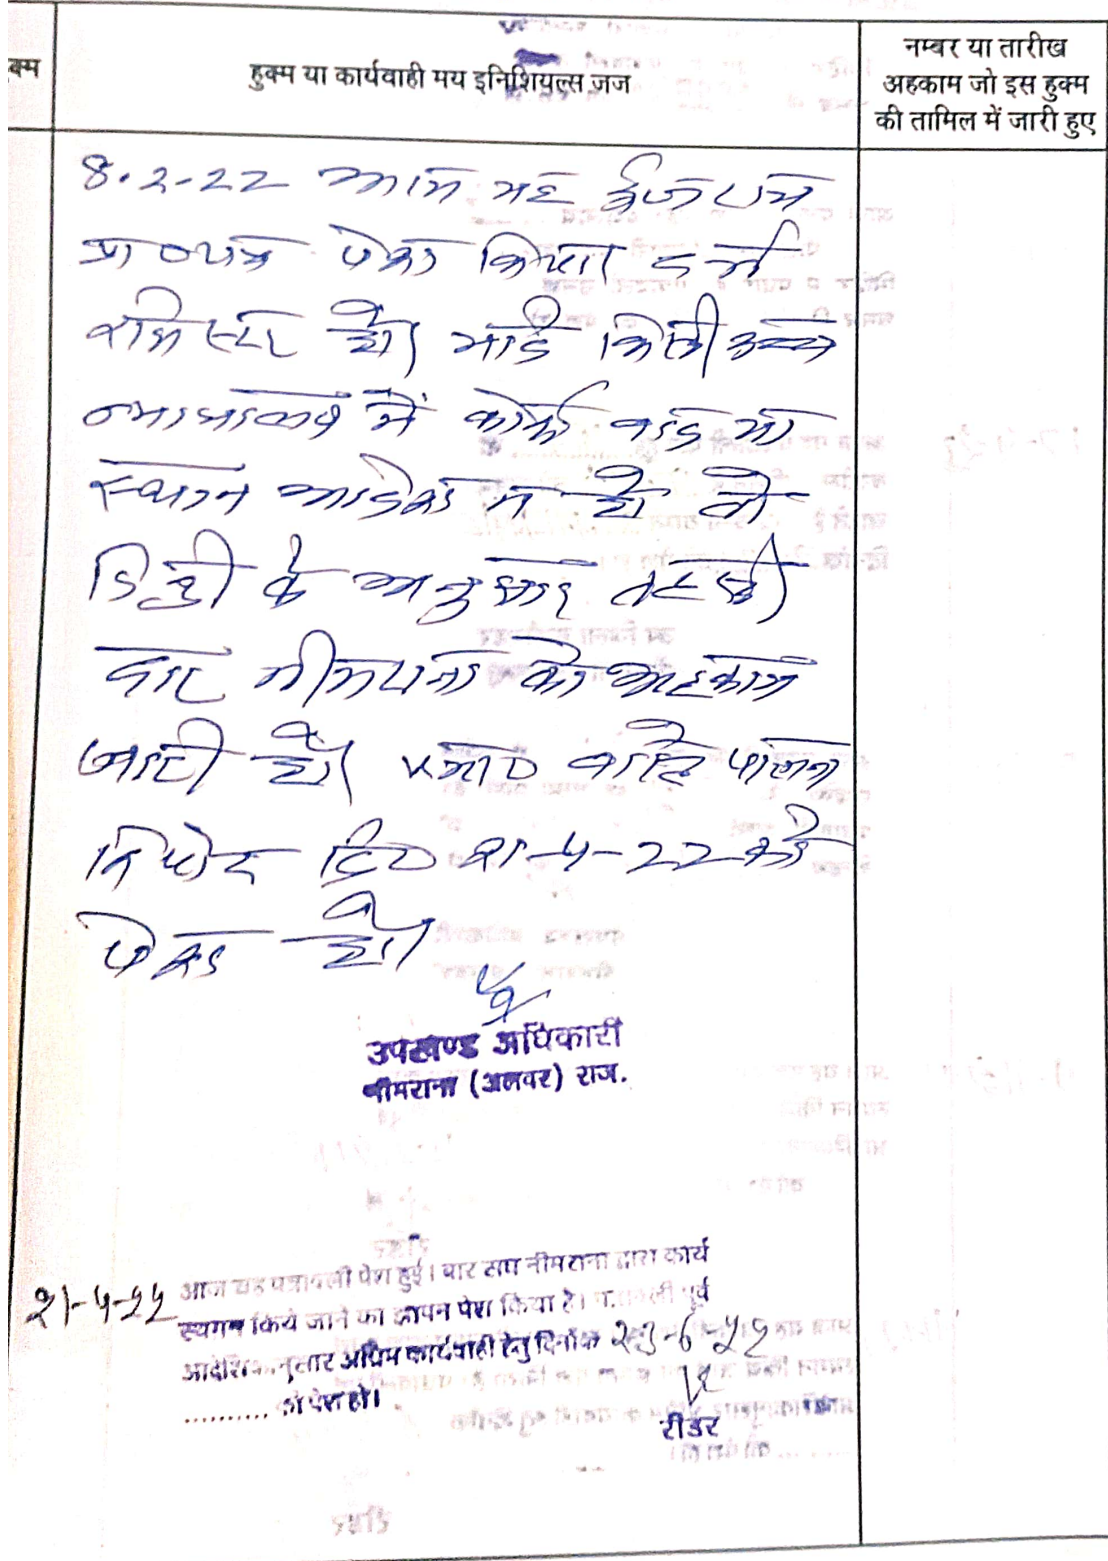 क्म
हुक्म या कार्यवाही मय इनिशियल्स जज
नम्बर या तारीख
अहकाम जो इस हुक्म
की तामिल में जारी हुए
8.2-22 आज यह
प्रा०पत्र पेश किया। दर्ज
रजिस्टर हो। यदि किसी अन्य
न्यायालय में कोई वाद या
स्थगन आदेश न हो तो
डिक्री के अनुसार तहसील
दार नीमराना को अहकाम
जारी हो। पत्रा० वास्ते पालना
रिपोर्ट दि० 21-4-22 को
पेश हो।
उपखण्ड अधिकारी
नीमराना (अलवर) राज.
21-4-22 आज यह पत्रावली पेश हुई। बार संघ नीमराना द्वारा कार्य
स्थगन किये जाने का ज्ञापन पेश किया है। पत्रावली पूर्व
आदेशिकानुसार अग्रिम कार्यवाही हेतु दिनांक 23-6-22
.......... को पेश हो।
रीडर